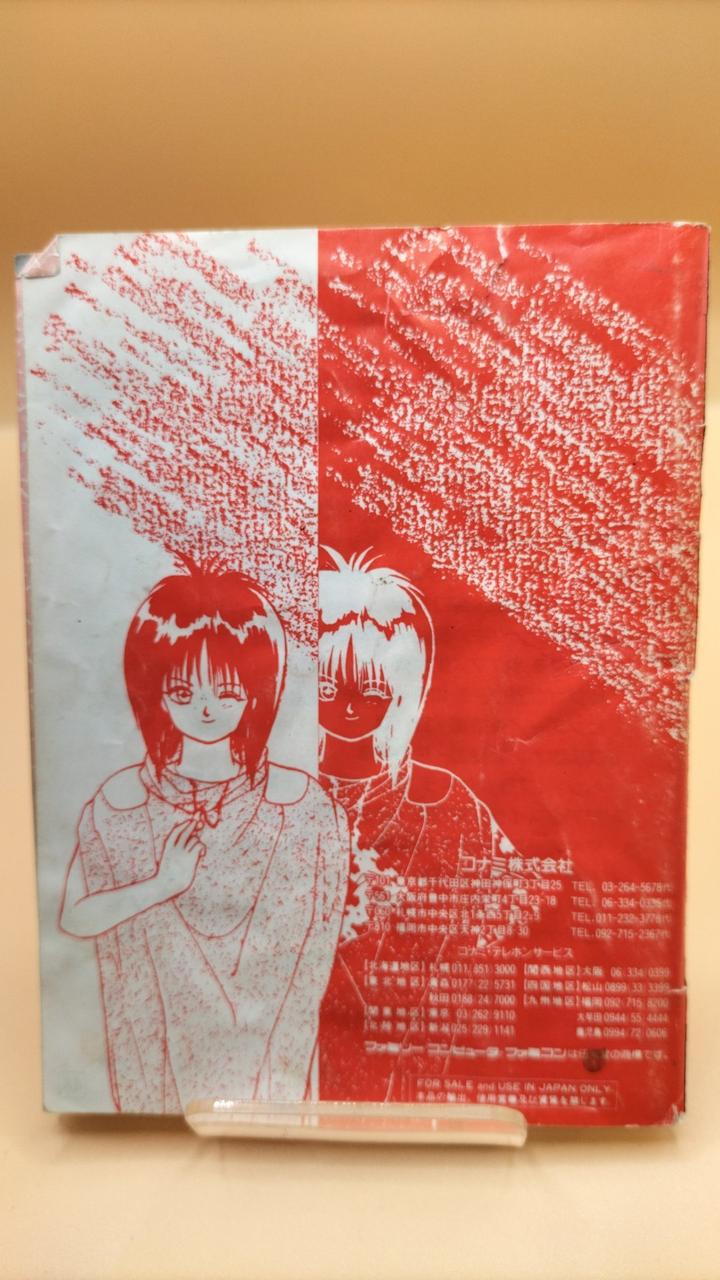 コナミ株式会社
〒101 東京都千代田区神田神保町3丁目25 TEL. 03-264-5678㈹
大阪府豊中市庄内栄町4丁目23-18 TEL. 06-334-0335㈹
札幌市中央区北1条西5丁目2-9 TEL.011-232-3778㈹
〒810 福岡市中央区天神2丁目8-30 TEL.092-715-2367㈹
コナミ・テレホンサービス
[北海道地区] 札幌 011.851.3000 [関西地区] 大阪 06.334.0399
[東北地区] 青森 0177.22.5731 [四国地区] 松山 0899.33.3399
秋田 0188.24.7000 [九州地区] 福岡 092.715.8200
[関東地区] 東京 03.262.9110 大牟田 0944.55.4444
[北陸地区] 新潟 025.229.1141 鹿児島 0994.72.0606
ファミリーコンピュータ・ファミコンは任天堂の商標です。
FOR SALE and USE IN JAPAN ONLY
本品の輸出、使用営業及び賃貸を禁じます。